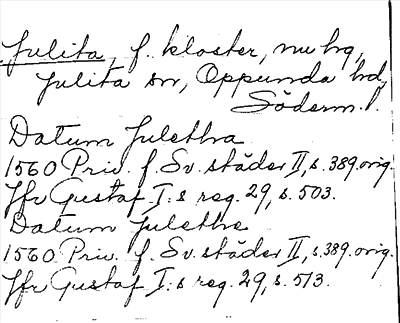 Julita, f. kloster, nu hg,
Julita sn, Oppunda hd,
Söderm. l.
Datum Juletha
1560 Priv. f. Sv. städer II, s. 389. orig.
Jfr Gustaf I:s reg. 29, s. 503.
Datum Juletha
1560 Priv. f. Sv. städer II, s. 389. orig.
Jfr Gustaf I:s reg. 29, s. 513.